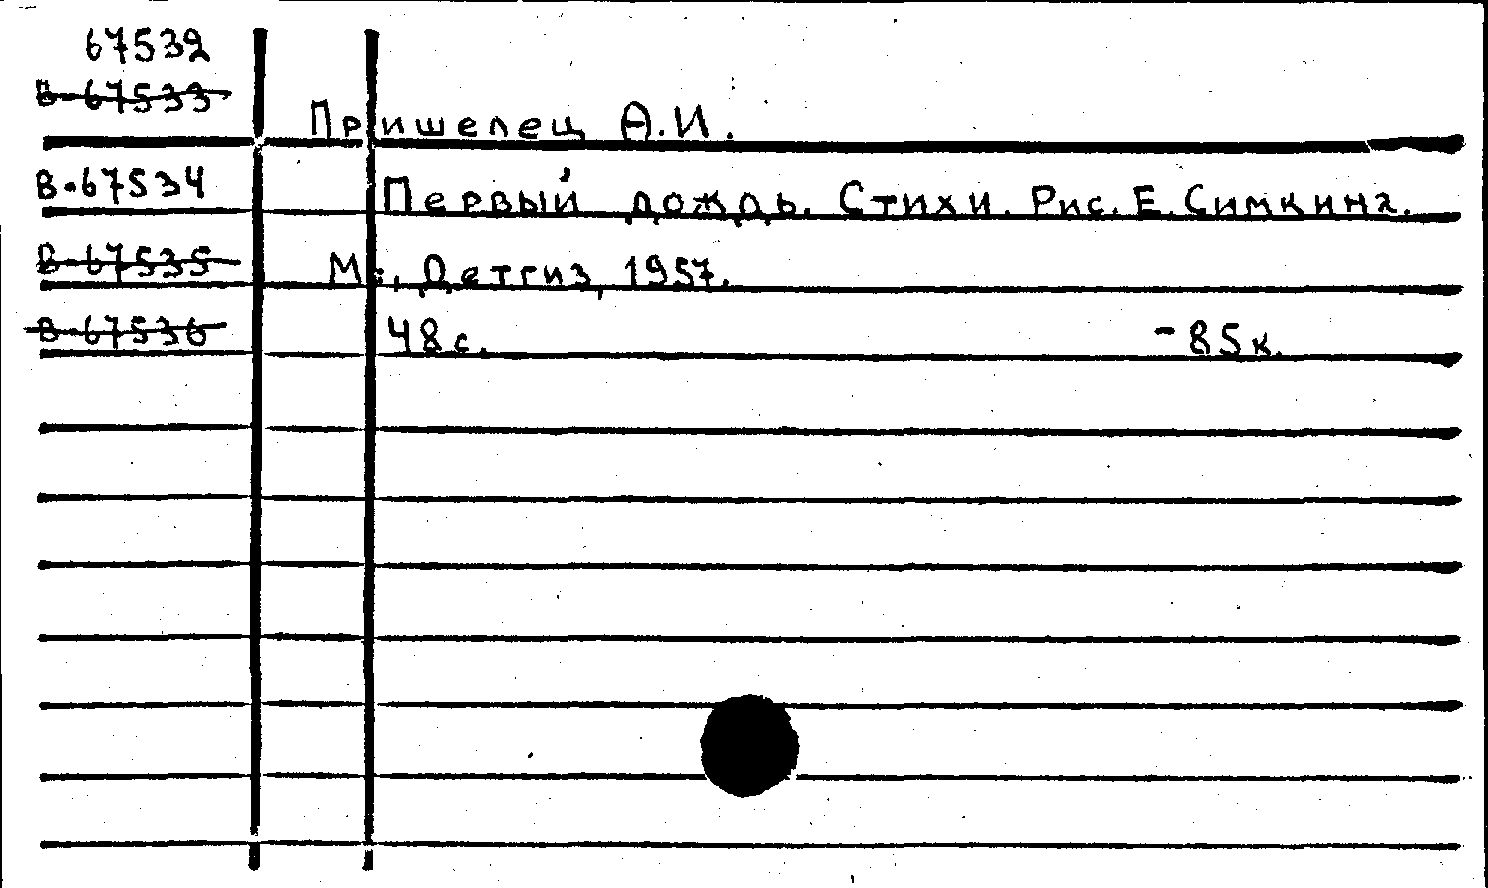 67532
В-67533
Пришелец А.И.
В-67534
Первый дождь. Стихи. Рис. Е. Симкина.
В-67535
М., Детгиз, 1957.
В-67536
48 с. - 85 к.